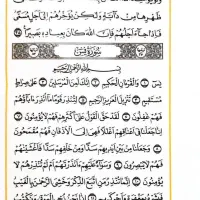 ظهرها من دابة ولكن يؤخرهم إلى أجل مسمى
فإذا جاء أجلهم فإن الله كان بعباده بصيرا
سورة يس
بسم الله الرحمن الرحيم
يس والقرءان الحكيم إنك لمن المرسلين على صراط
مستقيم تنزيل العزيز الرحيم لتنذر قوما ما أنذر ءاباؤهم
فهم غافلون لقد حق القول على أكثرهم فهم لا يؤمنون
إنا جعلنا في أعناقهم أغلالا فهي إلى الأذقان فهم مقمحون
وجعلنا من بين أيديهم سدا ومن خلفهم سدا فأغشيناهم
فهم لا يبصرون وسواء عليهم ءأنذرتهم أم لم تنذرهم لا
يؤمنون إنما تنذر من اتبع الذكر وخشي الرحمن بالغيب